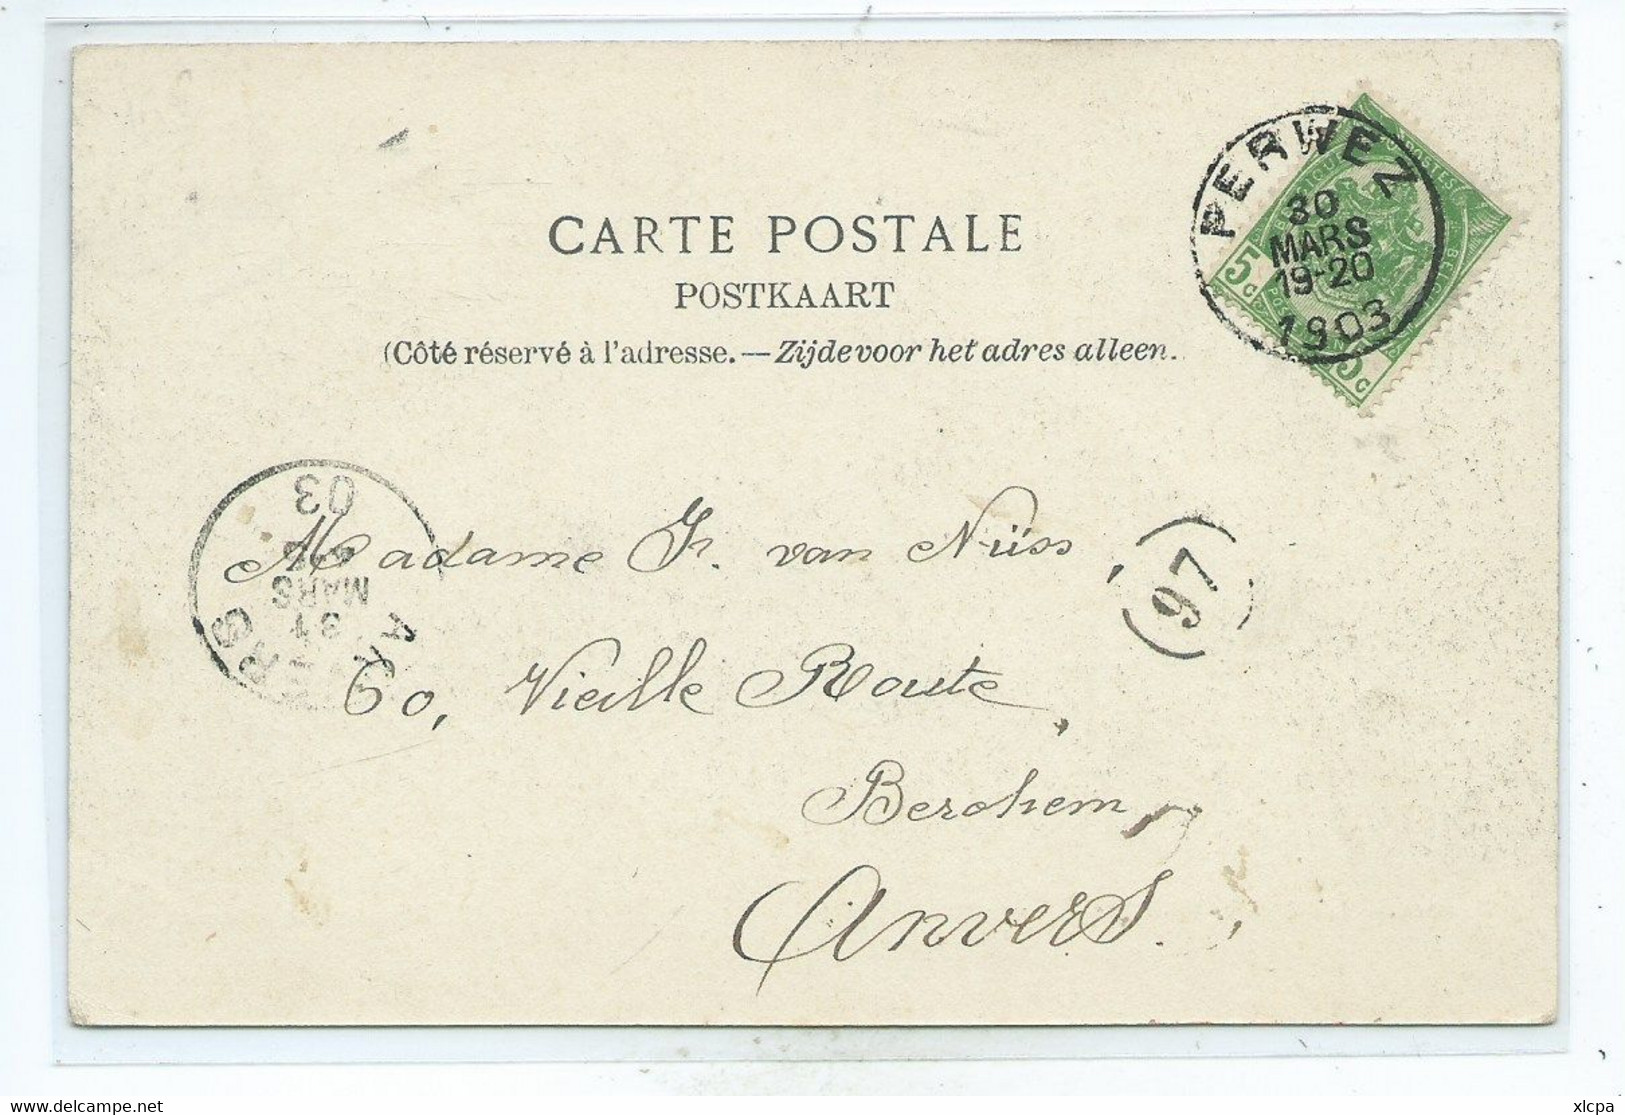 CARTE POSTALE
POSTKAART
(Côté réservé à l'adresse. — Zijde voor het adres alleen.
PERWEZ
30
MARS
19-20
1903
5c
5c
03
MARS
31
Madame Fr. van Nüss,
(97)
60, Vieille Route,
Berchem,
Anvers.
Delcampe.net
xlcpa